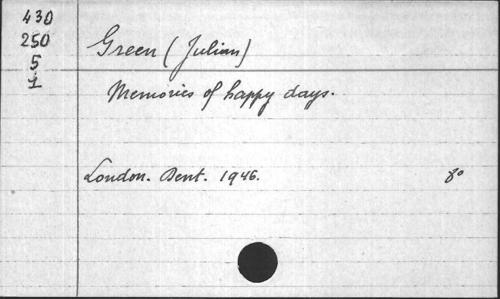 430
250
5
1
Green (Julian)
Memories of happy days.
London. Dent. 1946. 8°